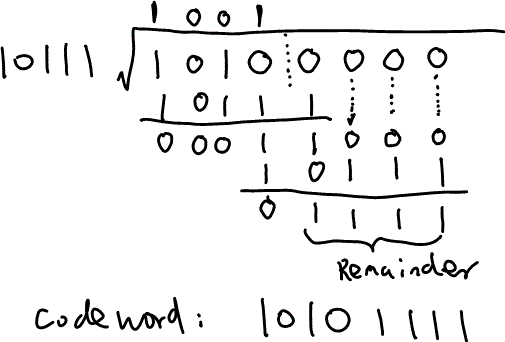 1001
10111 √ 1010 0000
10111
00011000
10111
01111
Remainder
codeword: 10101111